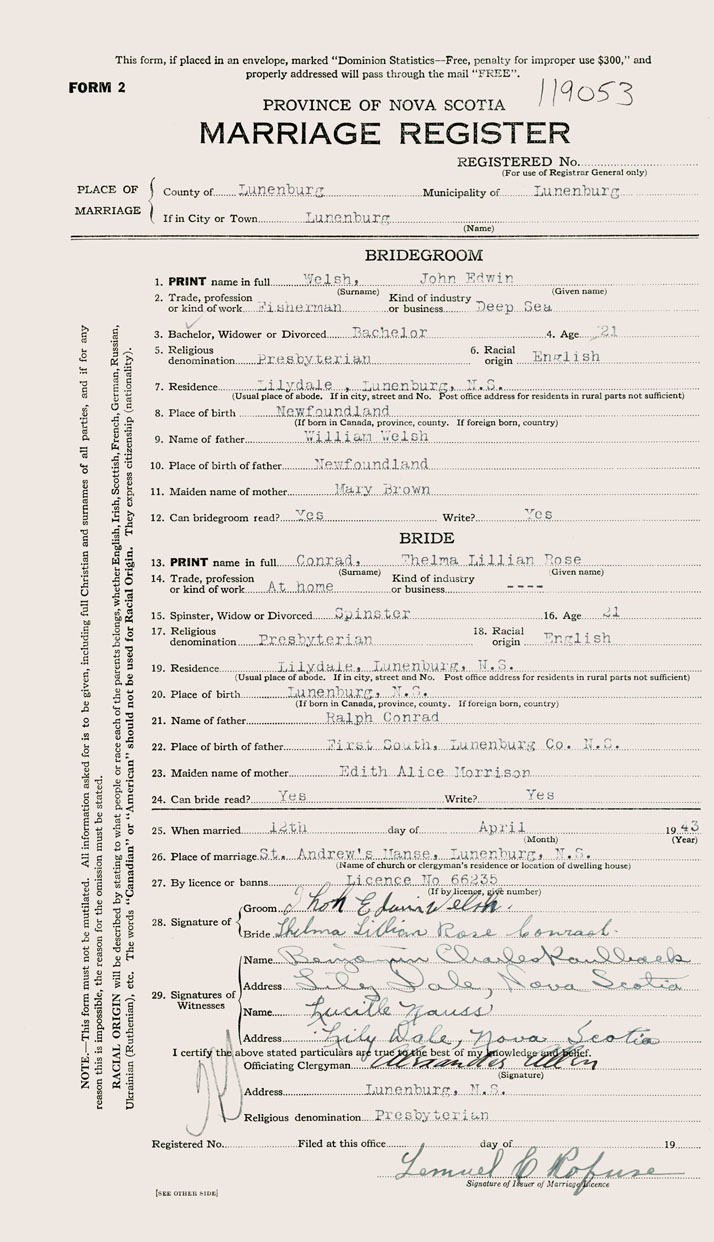 This form, if placed in an envelope, marked "Dominion Statistics—Free, penalty for improper use $300," and
properly addressed will pass through the mail "FREE".
FORM 2
119053
PROVINCE OF NOVA SCOTIA
MARRIAGE REGISTER
REGISTERED No.
(For use of Registrar General only)
PLACE OF MARRIAGE
County of Lunenburg Municipality of Lunenburg
If in City or Town Lunenburg
(Name)
BRIDEGROOM
1. PRINT name in full Welsh, John Edwin
(Surname) (Given name)
2. Trade, profession or kind of work Fisherman Kind of industry or business Deep Sea
3. Bachelor, Widower or Divorced Bachelor 4. Age 21
5. Religious denomination Presbyterian 6. Racial origin English
7. Residence Lilydale , Lunenburg, N.S.
(Usual place of abode. If in city, street and No. Post office address for residents in rural parts not sufficient)
8. Place of birth Newfoundland
(If born in Canada, province, county. If foreign born, country)
9. Name of father William Welsh
10. Place of birth of father Newfoundland
11. Maiden name of mother Mary Brown
12. Can bridegroom read? Yes Write? Yes
BRIDE
13. PRINT name in full Conrad, Thelma Lillian Rose
(Surname) (Given name)
14. Trade, profession or kind of work At home Kind of industry or business ----
15. Spinster, Widow or Divorced Spinster 16. Age 21
17. Religious denomination Presbyterian 18. Racial origin English
19. Residence Lilydale, Lunenburg, N.S.
(Usual place of abode. If in city, street and No. Post office address for residents in rural parts not sufficient)
20. Place of birth Lunenburg, N.S.
(If born in Canada, province, county. If foreign born, country)
21. Name of father Ralph Conrad
22. Place of birth of father First South, Lunenburg Co. N.S.
23. Maiden name of mother Edith Alice Morrison
24. Can bride read? Yes Write? Yes
25. When married 12th day of April 1943
(Month) (Year)
26. Place of marriage St. Andrew's Manse, Lunenburg, N.S.
(Name of church or clergyman's residence or location of dwelling house)
27. By licence or banns Licence No 66235
(If by licence, give number)
28. Signature of
Groom Jhon Edwin Welsh.
Bride Thelma Lillian Rose Conrad.
29. Signatures of Witnesses
Name Benjamin Charles Kaulback
Address Lily Dale, Nova Scotia
Name Lucille Nauss
Address Lily Dale, Nova Scotia
I certify the above stated particulars are true to the best of my knowledge and belief.
Officiating Clergyman Alexander Allen
(Signature)
Address Lunenburg, N.S.
Religious denomination Presbyterian
Registered No. Filed at this office day of 19
Lemuel C Rofuse
Signature of Issuer of Marriage Licence
[SEE OTHER SIDE]
NOTE.—This form must not be mutilated. All information asked for is to be given, including full Christian and surnames of all parties, and if for any
reason this is impossible, the reason for the omission must be stated.
RACIAL ORIGIN will be described by stating to what people or race each of the parents belongs, whether English, Irish, Scottish, French, German, Russian,
Ukrainian (Ruthenian), etc. The words "Canadian" or "American" should not be used for Racial Origin. They express citizenship (nationality).